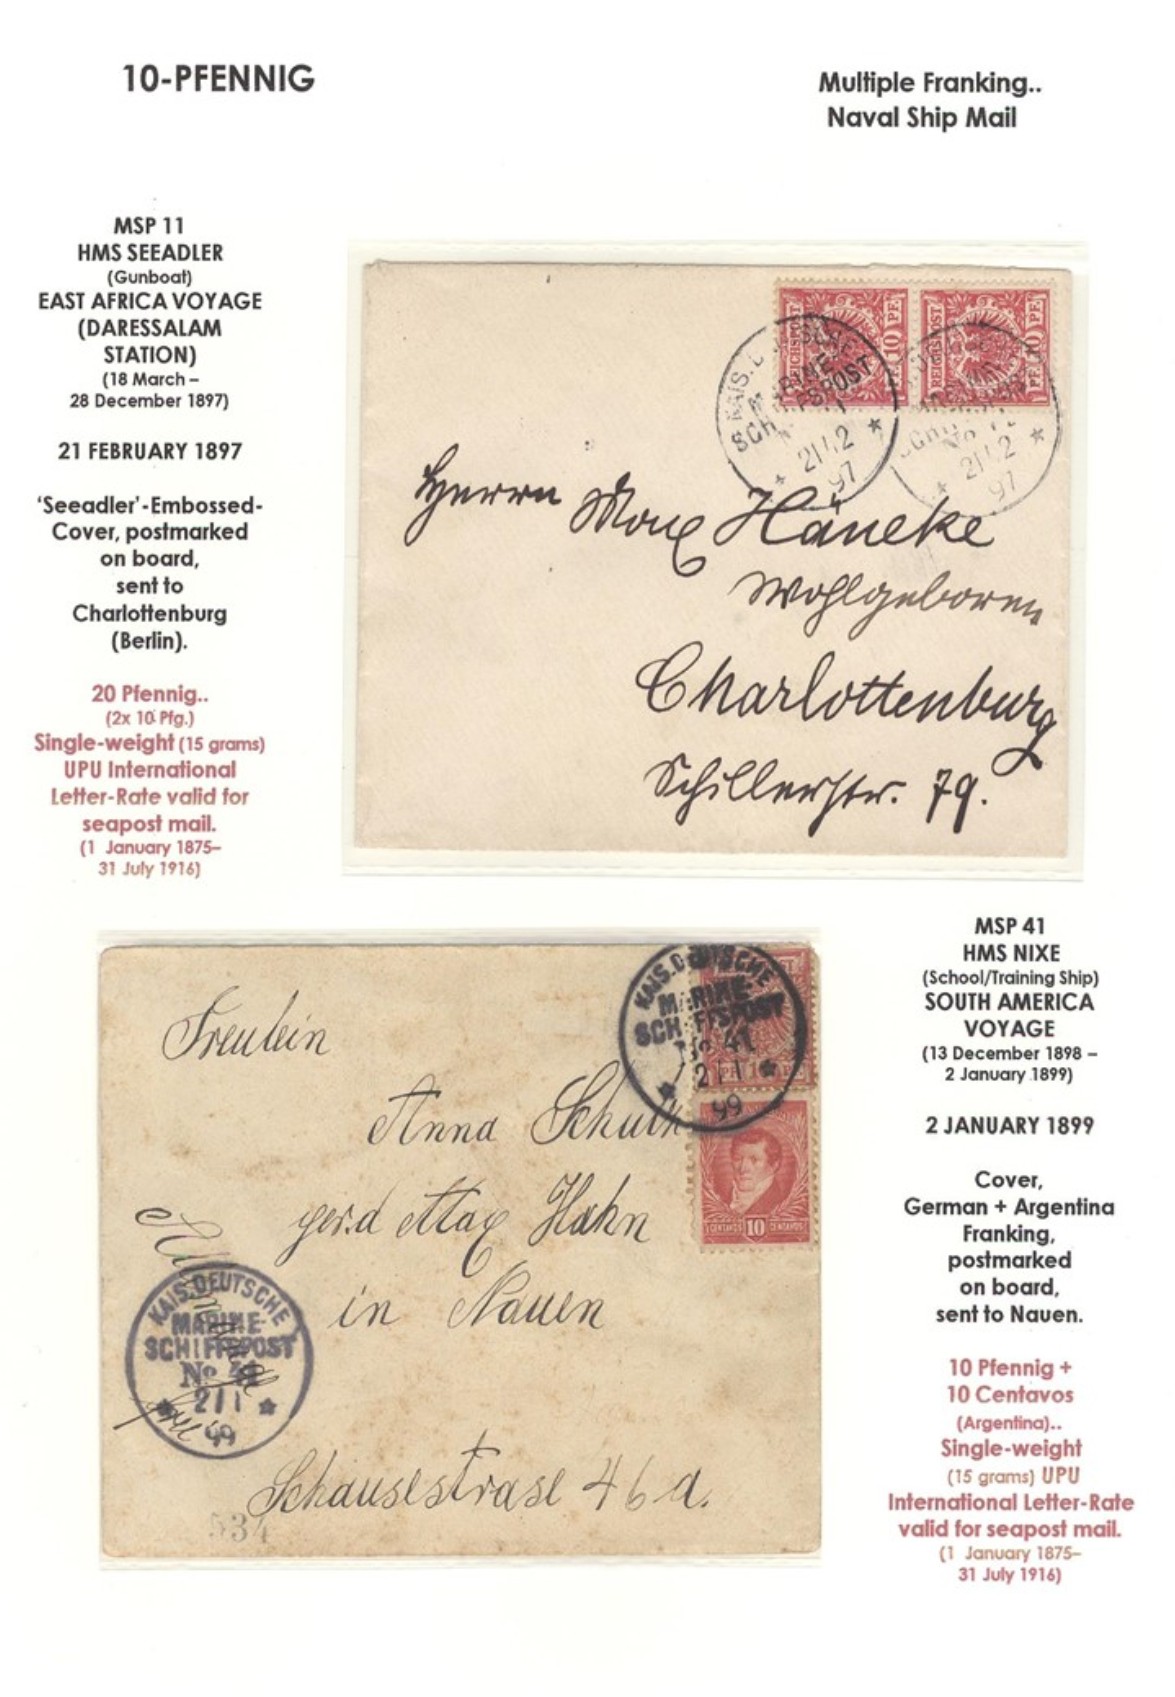 10-PFENNIG
Multiple Franking..
Naval Ship Mail
MSP 11
HMS SEEADLER
(Gunboat)
EAST AFRICA VOYAGE
(DARESSALAM
STATION)
(18 March –
28 December 1897)
21 FEBRUARY 1897
‘Seeadler’-Embossed-
Cover, postmarked
on board,
sent to
Charlottenburg
(Berlin).
20 Pfennig..
(2x 10 Pfg.)
Single-weight (15 grams)
UPU International
Letter-Rate valid for
seapost mail.
(1 January 1875–
31 July 1916)
REICHSPOST
10 PF.
REICHSPOST
KAIS.
MARINE-
21/2
97
21/2
97
Herrn Max Häneke
Wohlgeboren
Charlottenburg
Schillerstr. 79.
MSP 41
HMS NIXE
(School/Training Ship)
SOUTH AMERICA
VOYAGE
(13 December 1898 –
2 January 1899)
2 JANUARY 1899
Cover,
German + Argentina
Franking,
postmarked
on board,
sent to Nauen.
10 Pfennig +
10 Centavos
(Argentina)..
Single-weight
(15 grams) UPU
International Letter-Rate
valid for seapost mail.
(1 January 1875–
31 July 1916)
KAIS. DEUTSCHE
MARINE-
SCHIFFSPOST
No 41
2/1
99
CENTAVOS 10 CENTAVOS
Freulein
Anna
Max Hahn
in Nauen
KAIS. DEUTSCHE
MARINE-
SCHIFFSPOST
No 41
2/1
99
46 a.
534